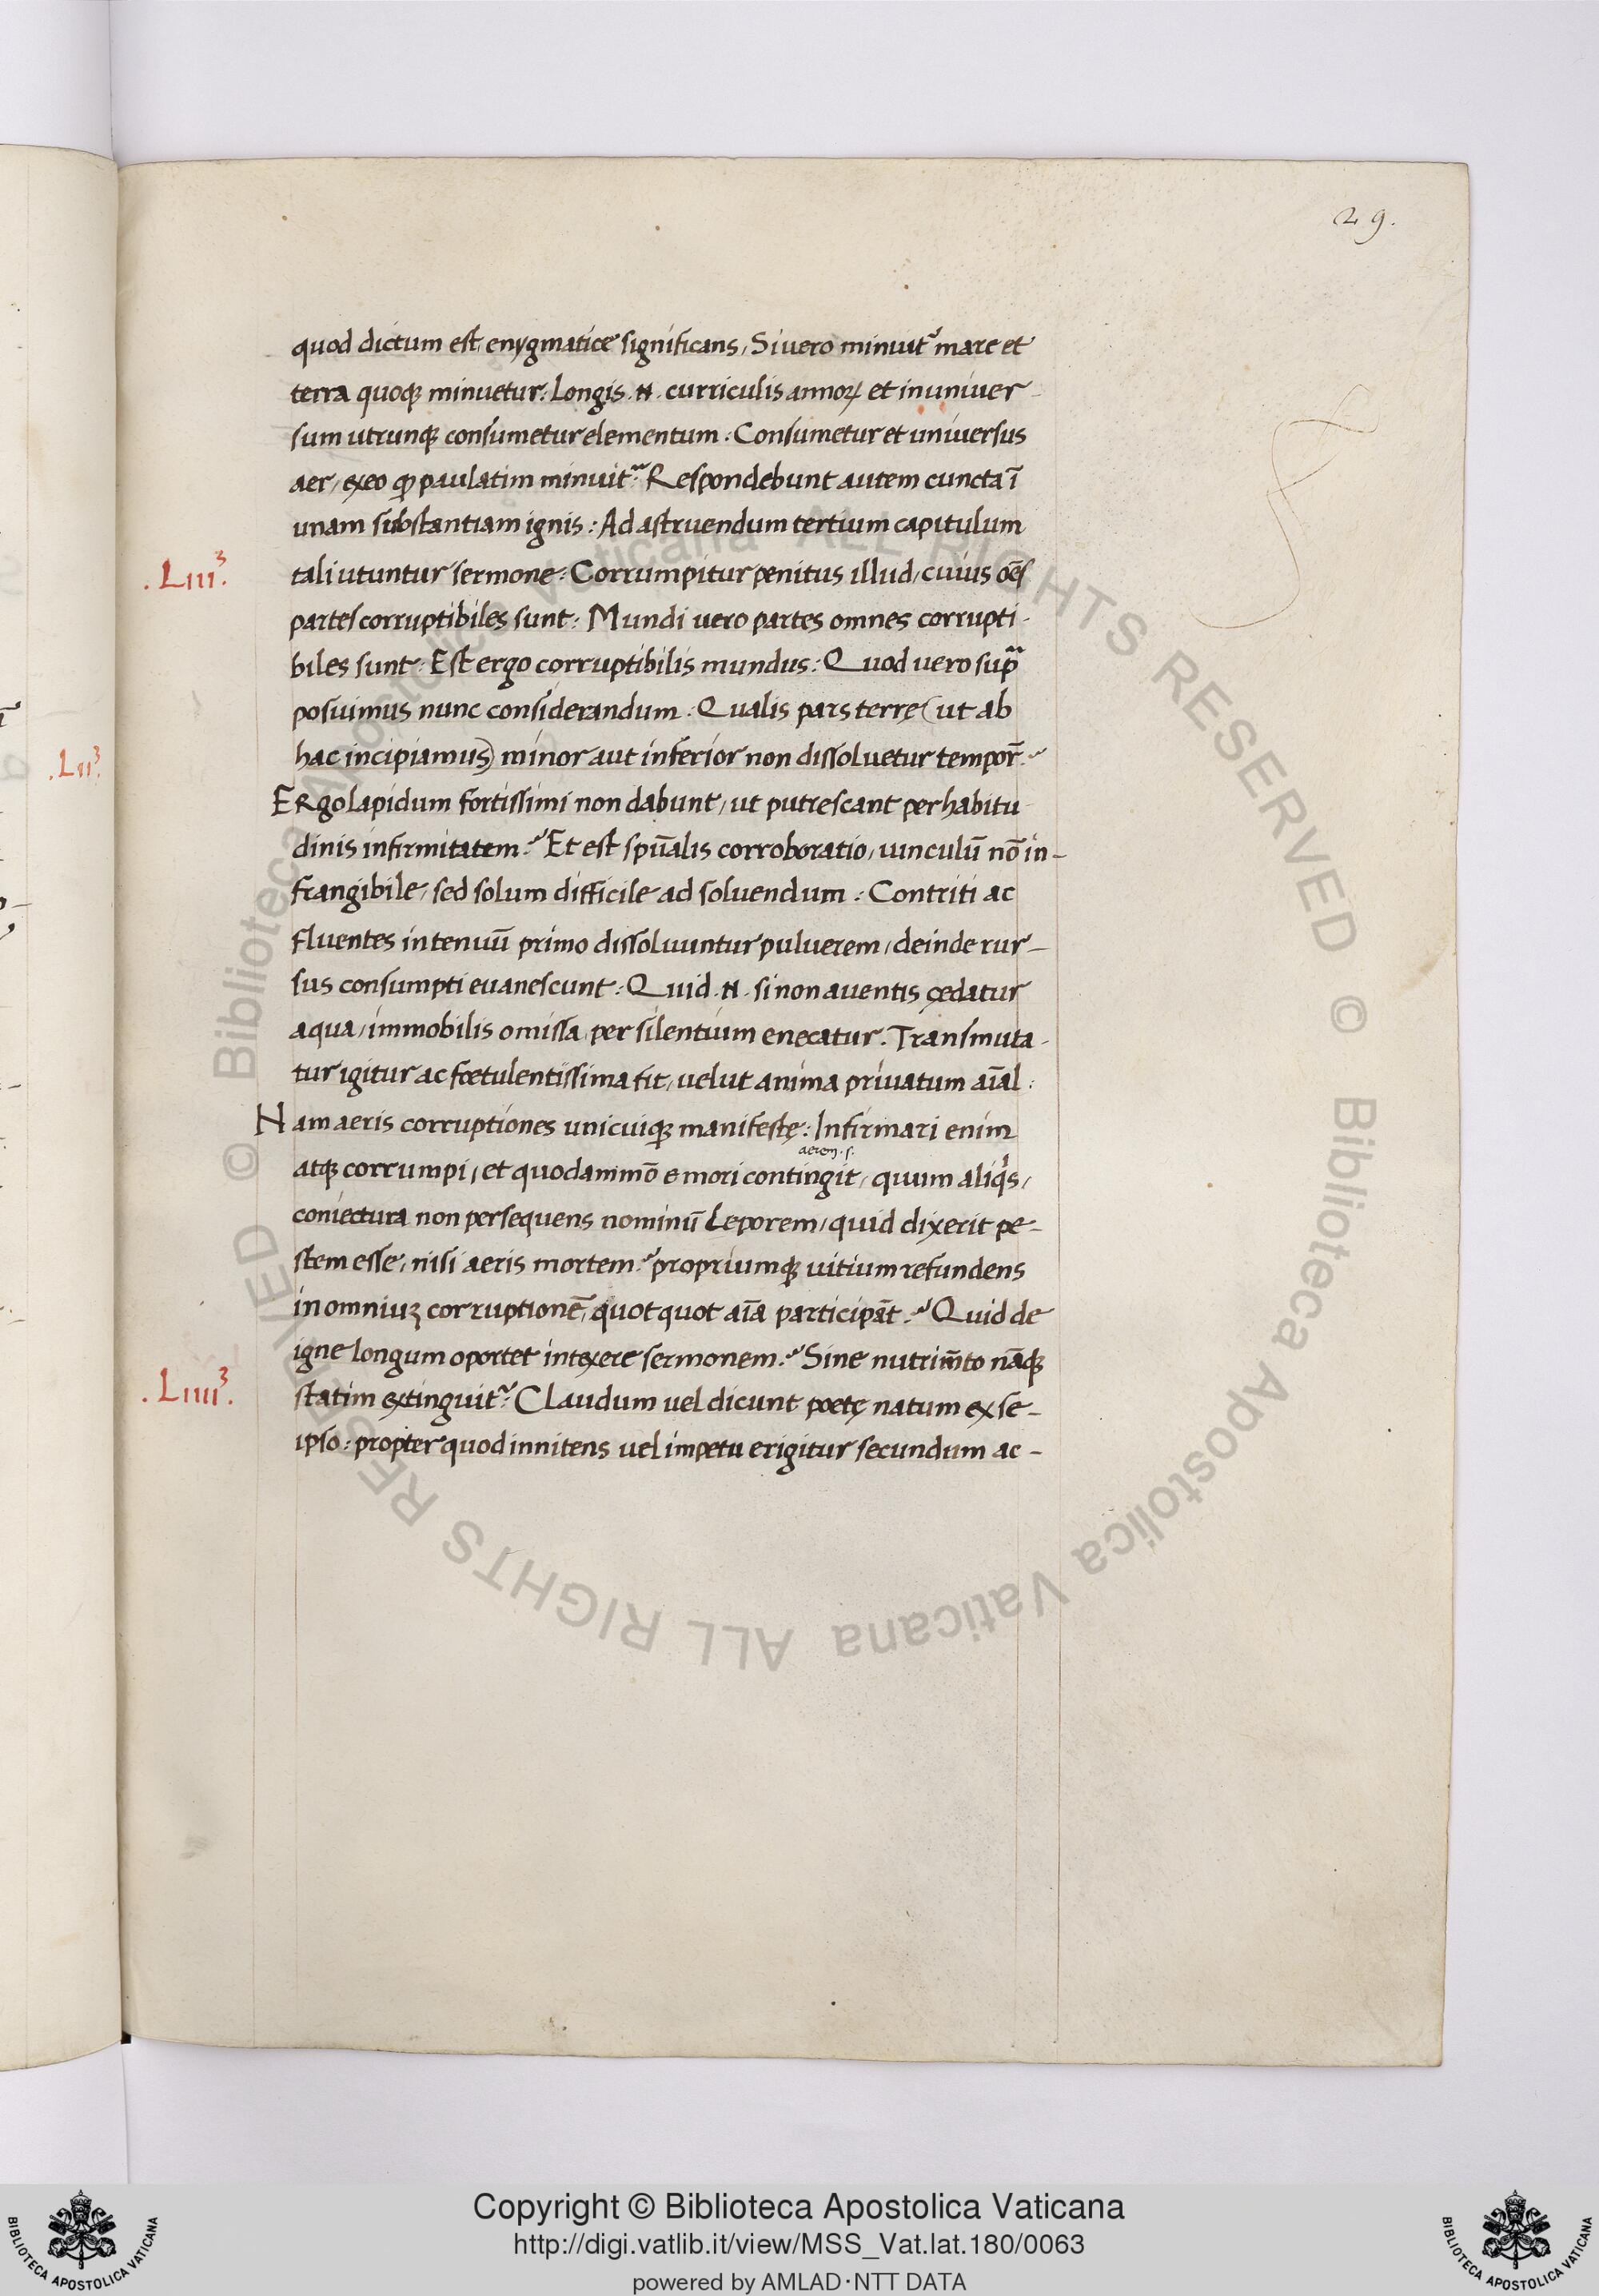 29.
quod dictum est, enygmatice significans, Si vero minuit᷑ mare et
terra quoqꝫ minuetur: Longis .N. curriculis annoꝝ et in univer-
sum utrunqꝫ consumetur elementum: Consumetur et universus
aer, ex eo ꝙ paulatim minuit᷑. Respondebunt autem cuncta ī
unam substantiam ignis: Ad astruendum tertium capitulum
.LIII³.
tali utuntur sermone: Corrumpitur penitus illud, cuius oēs
partes corruptibiles sunt: Mundi vero partes omnes corrupti-
biles sunt: Est ergo corruptibilis mundus: Quod vero supᷓ
posuimus nunc considerandum: Qualis pars terrę (ut ab
.LII³.
hac incipiamus) minor aut inferior non dissolvetur tempor̄?
Ergo lapidum fortissimi non dabunt, ut putrescant per habitu
dinis infirmitatem? Et est spūalis corroboratio, vinculū nō in-
frangibile, sed solum difficile ad solvendum: Contriti ac
fluentes in tenuū primo dissolvuntur pulverem, deinde rur-
sus consumpti evanescunt: Quid .N. si non aventis cędatur
aqua, immobilis omissa, per silentium enecatur. Transmuta-
tur igitur ac fœtulentissima fit, velut anima privatum aīal:
Nam aeris corruptiones unicuiqꝫ manifestę: Infirmari enim
aerem .s.
atqꝫ corrumpi, et quodammō emori contingit, quum aliqͥs,
coniectura non persequens nominū leporem, quid dixerit pe-
stem esse, nisi aeris mortem? propriumqꝫ vitium refundens
in omniuꝫ corruptionē, quotquot aīa participāt? Quid de
igne longum oportet intexere sermonem? Sine nutrim̄to nāqꝫ
.LIIII³.
statim extinguit᷑? Claudum vel dicunt poetę natum ex se-
ipso: propter quod innitens vel impetu erigitur secundum ac-
© Biblioteca Apostolica Vaticana ALL RIGHTS RESERVED © Biblioteca Apostolica Vaticana ALL RIGHTS RESERVED
Copyright © Biblioteca Apostolica Vaticana
http://digi.vatlib.it/view/MSS_Vat.lat.180/0063
powered by AMLAD·NTT DATA
BIBLIOTECA APOSTOLICA VATICANA
BIBLIOTECA APOSTOLICA VATICANA